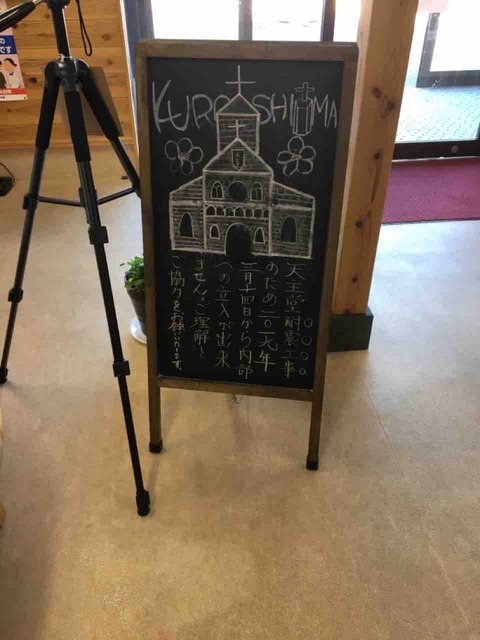 KUROSHIMA
天主堂耐震工事
のため二〇一九年
二月十四日から内部
への立入が出来
ません。ご理解と、
ご協力をお願いいたします。